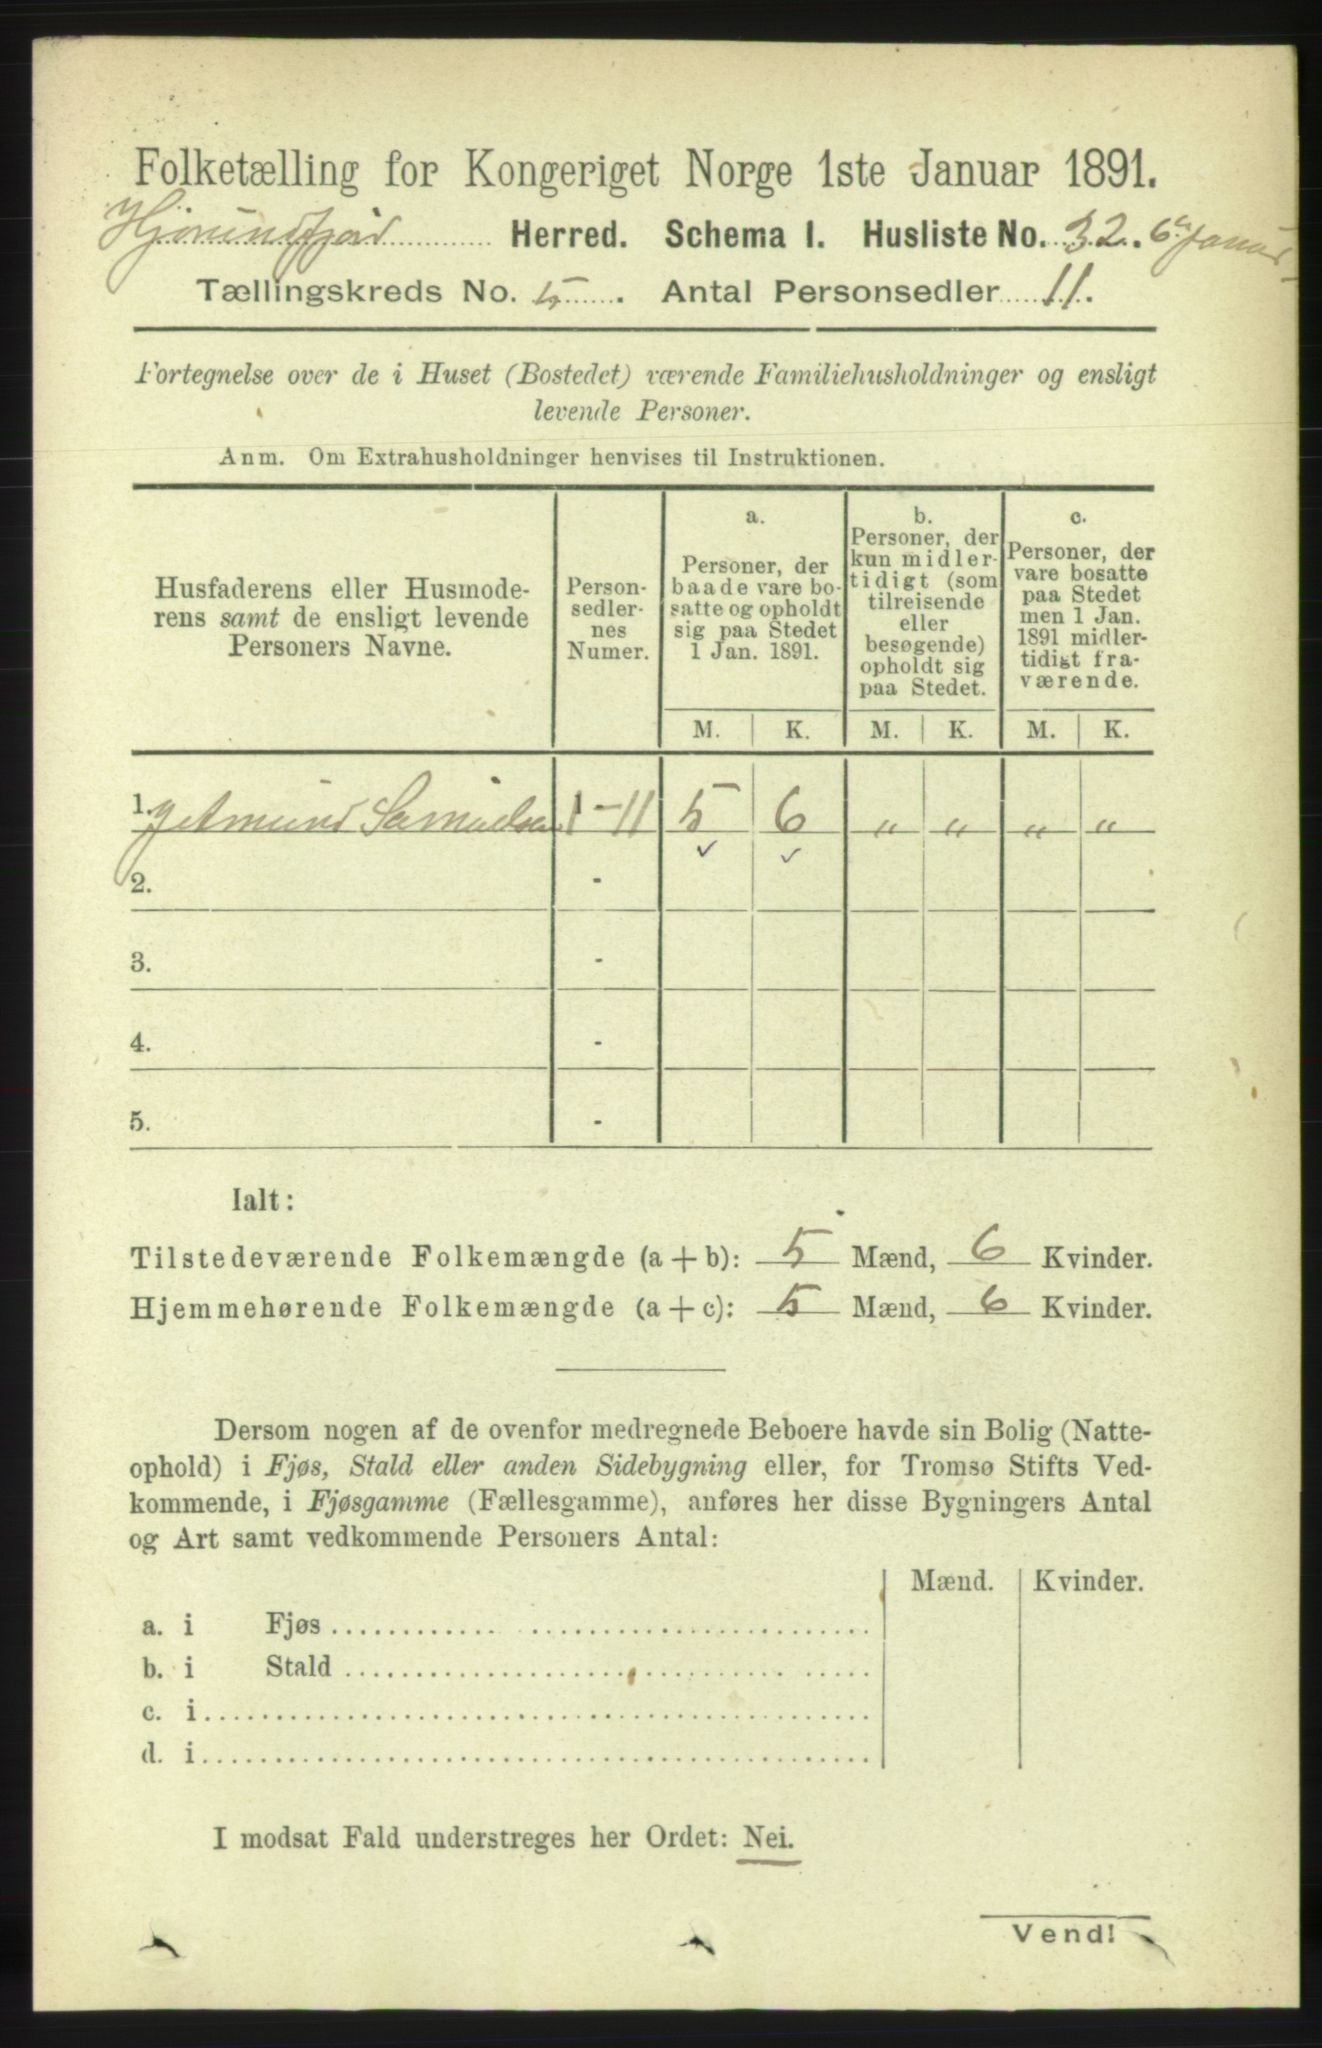 Folketælling for Kongeriget Norge 1ste Januar 1891.
Hjørundfjord Herred. Schema I. Husliste No. 32. 6te Januar
Tællingskreds No. 5. Antal Personsedler 11.
Fortegnelse over de i Huset (Bostedet) værende Familiehusholdninger og ensligt
levende Personer.
Anm. Om Extrahusholdninger henvises til Instruktionen.
Husfaderens eller Husmode-
rens samt de ensligt levende
Personers Navne.
Person-
sedler-
nes
Numer.
a.
Personer, der
baade vare bo-
satte og opholdt
sig paa Stedet
1 Jan. 1891.
b.
Personer, der
kun midler-
tidigt (som
tilreisende
eller
besøgende)
opholdt sig
paa Stedet.
c.
Personer, der
vare bosatte
paa Stedet
men 1 Jan.
1891 midler-
tidigt fra-
værende.
M. K. M. K. M. K.
1. Jetmund Samuelsen 1-11 5 6 " " " "
2. -
3. -
4. -
5. -
Ialt:
Tilstedeværende Folkemængde (a + b): 5 Mænd, 6 Kvinder.
Hjemmehørende Folkemængde (a + c): 5 Mænd, 6 Kvinder.
Dersom nogen af de ovenfor medregnede Beboere havde sin Bolig (Natte-
ophold) i Fjøs, Stald eller anden Sidebygning eller, for Tromsø Stifts Ved-
kommende, i Fjøsgamme (Fællesgamme), anføres her disse Bygningers Antal
og Art samt vedkommende Personers Antal:
Mænd. Kvinder.
a. i Fjøs
b. i Stald
c. i
d. i
I modsat Fald understreges her Ordet: Nei.
Vend!